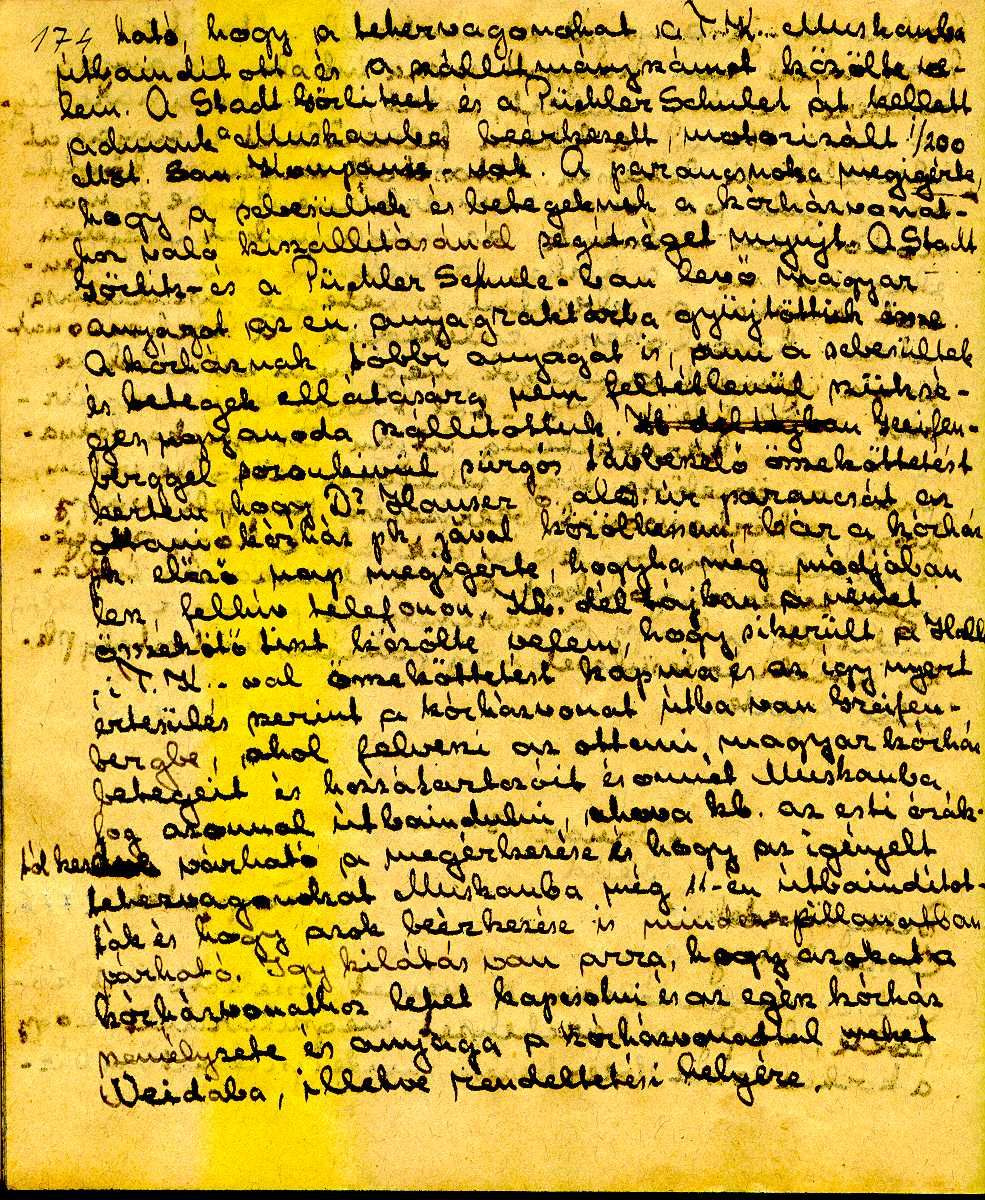 174 ható, hogy a tehervagonokat a T.K. Muskauba
útbaindította és a szállítmányszámot közölte ve-
lem. A Stadt Görlitzet és a Pückler Schulet át kellett
adnunk a Muskauba beérkezett, motorizált 1/200
Mot. San. Kompanie-nak. A parancsnoka megigérte,
hogy a sebesültek és betegeknek a kórházvonat-
hoz való kiszállításánál segítséget nyujt. A Stadt
Görlitz- és a Pückler Schule-ban levő magyar
anyagot az eü. anyagraktárba gyüjtöttük össze.
A kórháznak többi anyagát is, ami a sebesültek
és betegek ellátására nem feltétlenül szüksé-
ges, ugyanoda szállítottuk. Greifen-
berggel soronkivül sürgős távbeszélő összeköttetést
kértem, hogy Dr Hauser o. alez. úr parancsát az
ottani kórház pk. jával közölhessem, bár a kórház
pk. előző nap megigérte, hogyha még módjában
lesz, felhív telefonon. Kb. déltájban a német
összekötő tiszt közölte velem, hogy sikerült a Hall
-i T.K.-val összeköttetést kapnia és az így nyert
értesülés szerint a kórházvonat útba van Greifen-
bergbe, ahol felveszi az ottani magyar kórház
betegeit és hozzátartozóit és onnét Muskauba
fog azonnal útbaindulni, ahova kb. az esti órák-
tól kezdve várható a megérkezése és hogy az igényelt
tehervagonokat Muskauba még 11-én útbaindítot-
ták és hogy azok beérkezése is minden pillanatban
várható. Igy kilátás van arra, hogy azokat a
kórházvonathoz lehet kapcsolni és az egész kórház
személyzete és anyaga a kórházvonattal mehet
Weidába, illetve rendeltetési helyére.